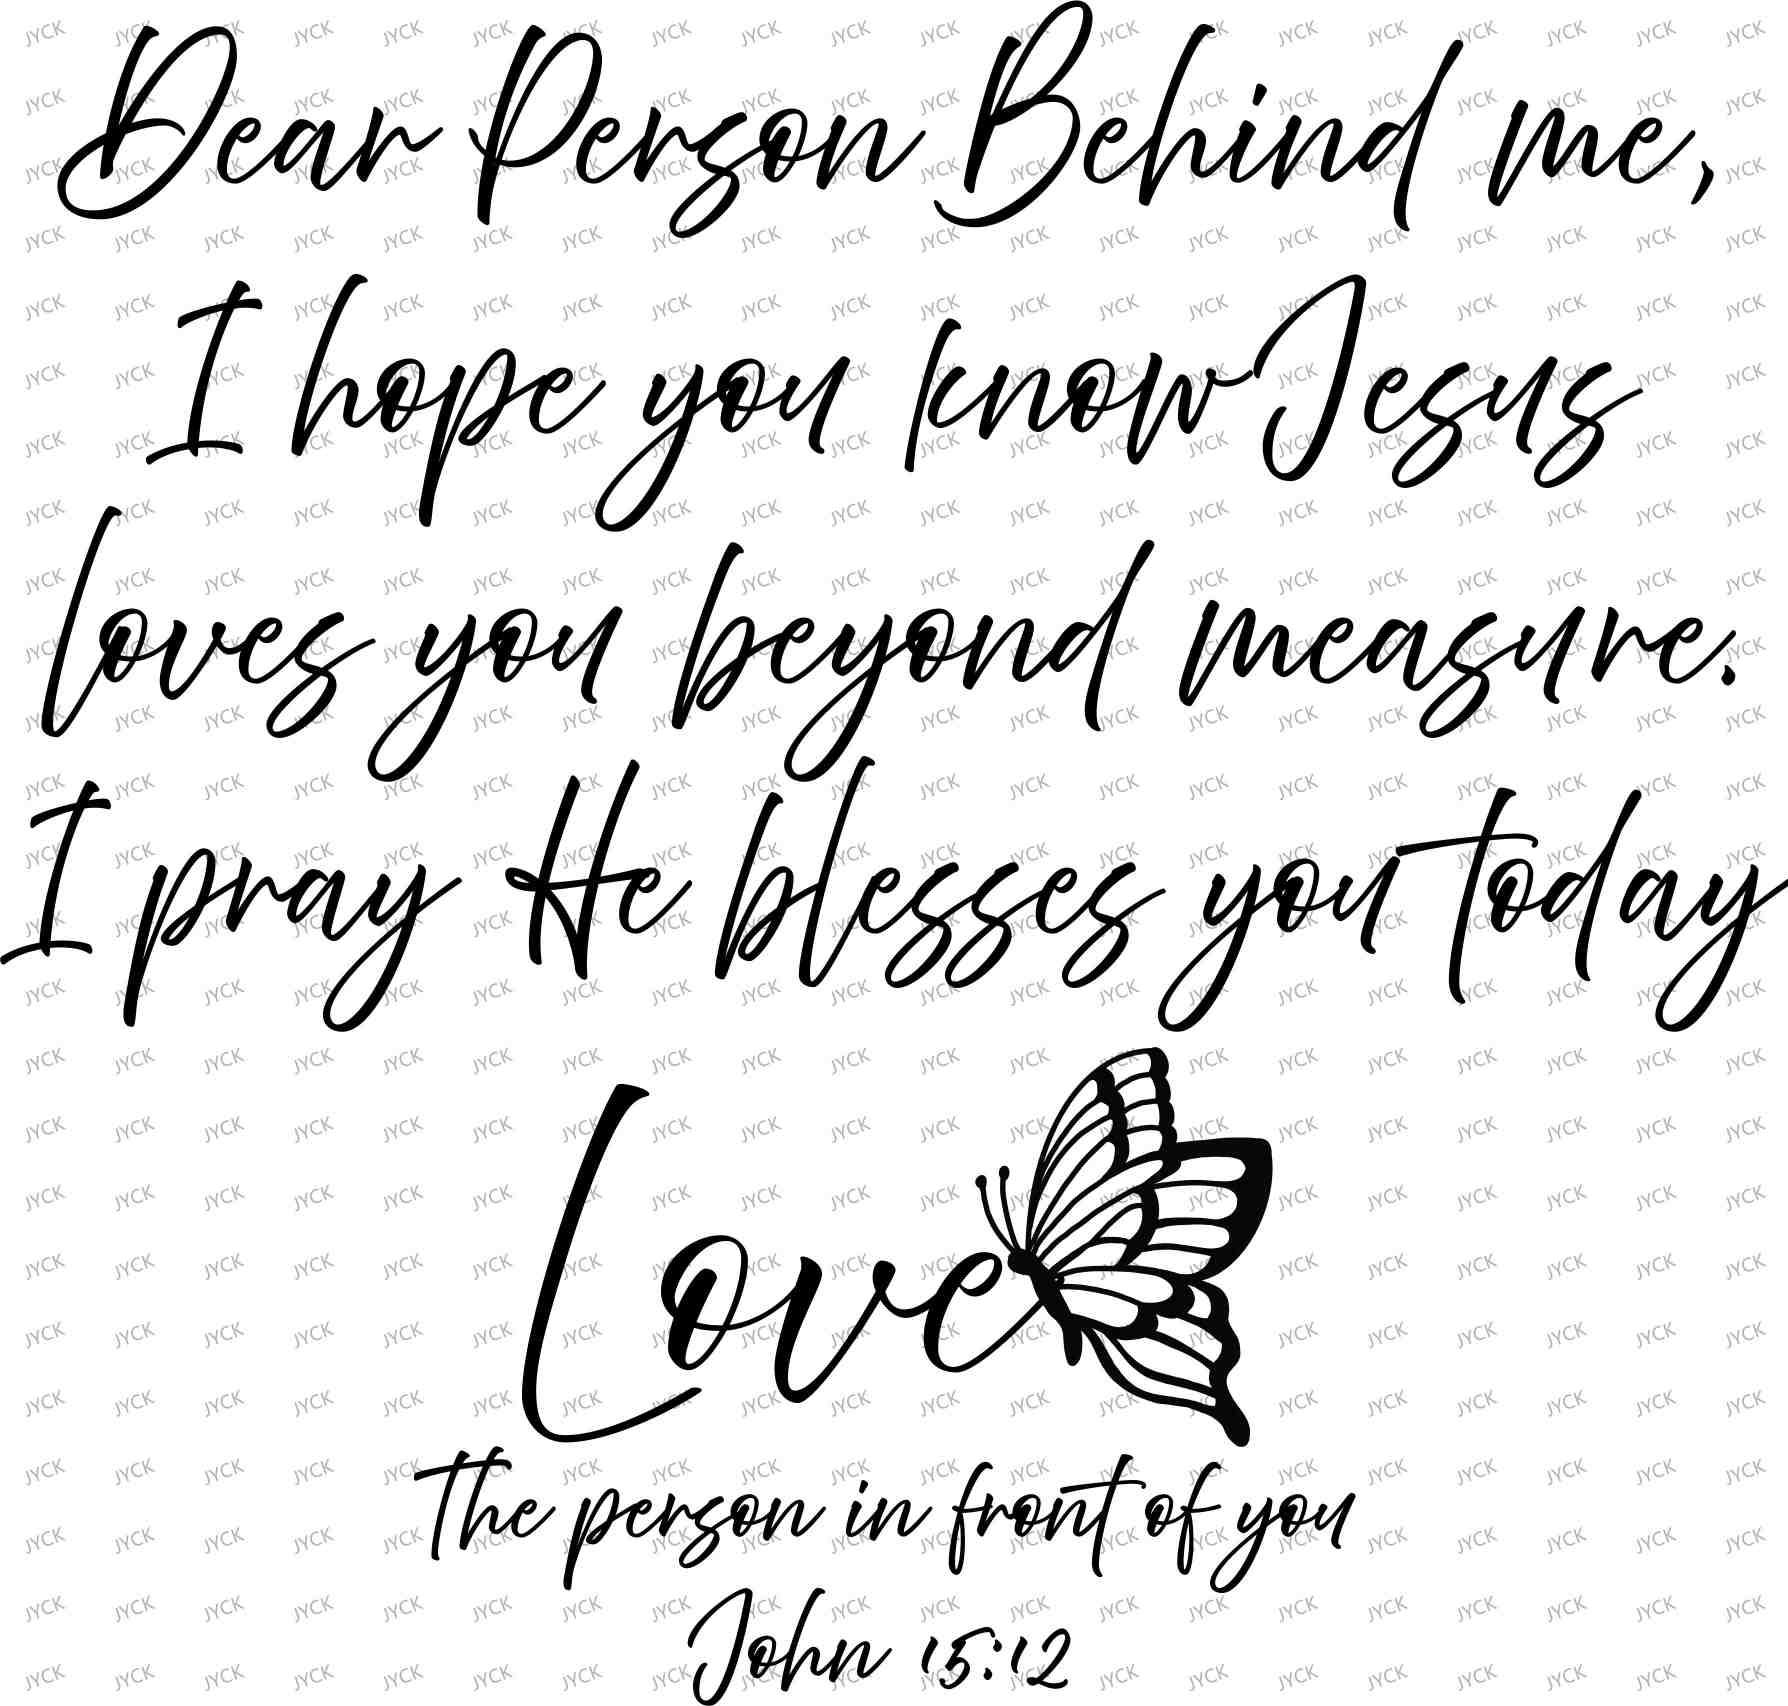 Dear Person Behind me,
I hope you know Jesus
loves you beyond measure.
I pray He blesses you today
Love
The person in front of you
John 15:12
JYCK